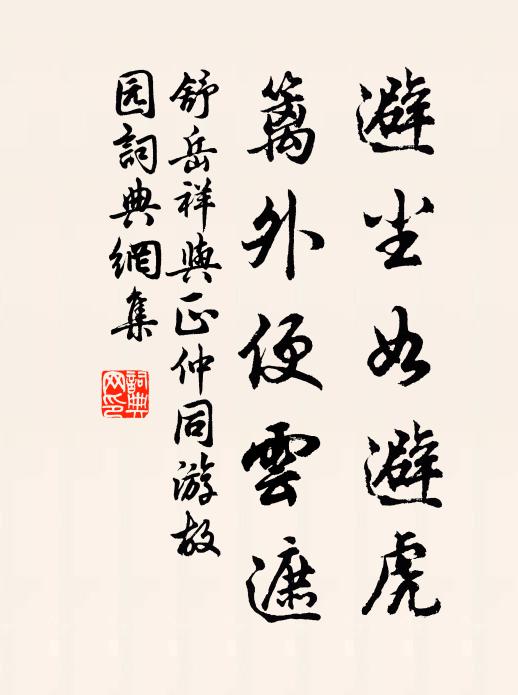 避尘如避虎
篱外便雲遮
舒岳祥與正仲同游故
园詞典網集
詞典
网印